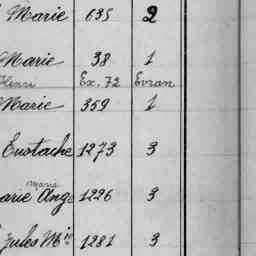 Marie 635 2
Marie 38 1
Henri Ex. 72 Evran
Marie 359 1
Eustache 1273 3
marie
arie Ange 1226 3
Jules Mie 1281 3